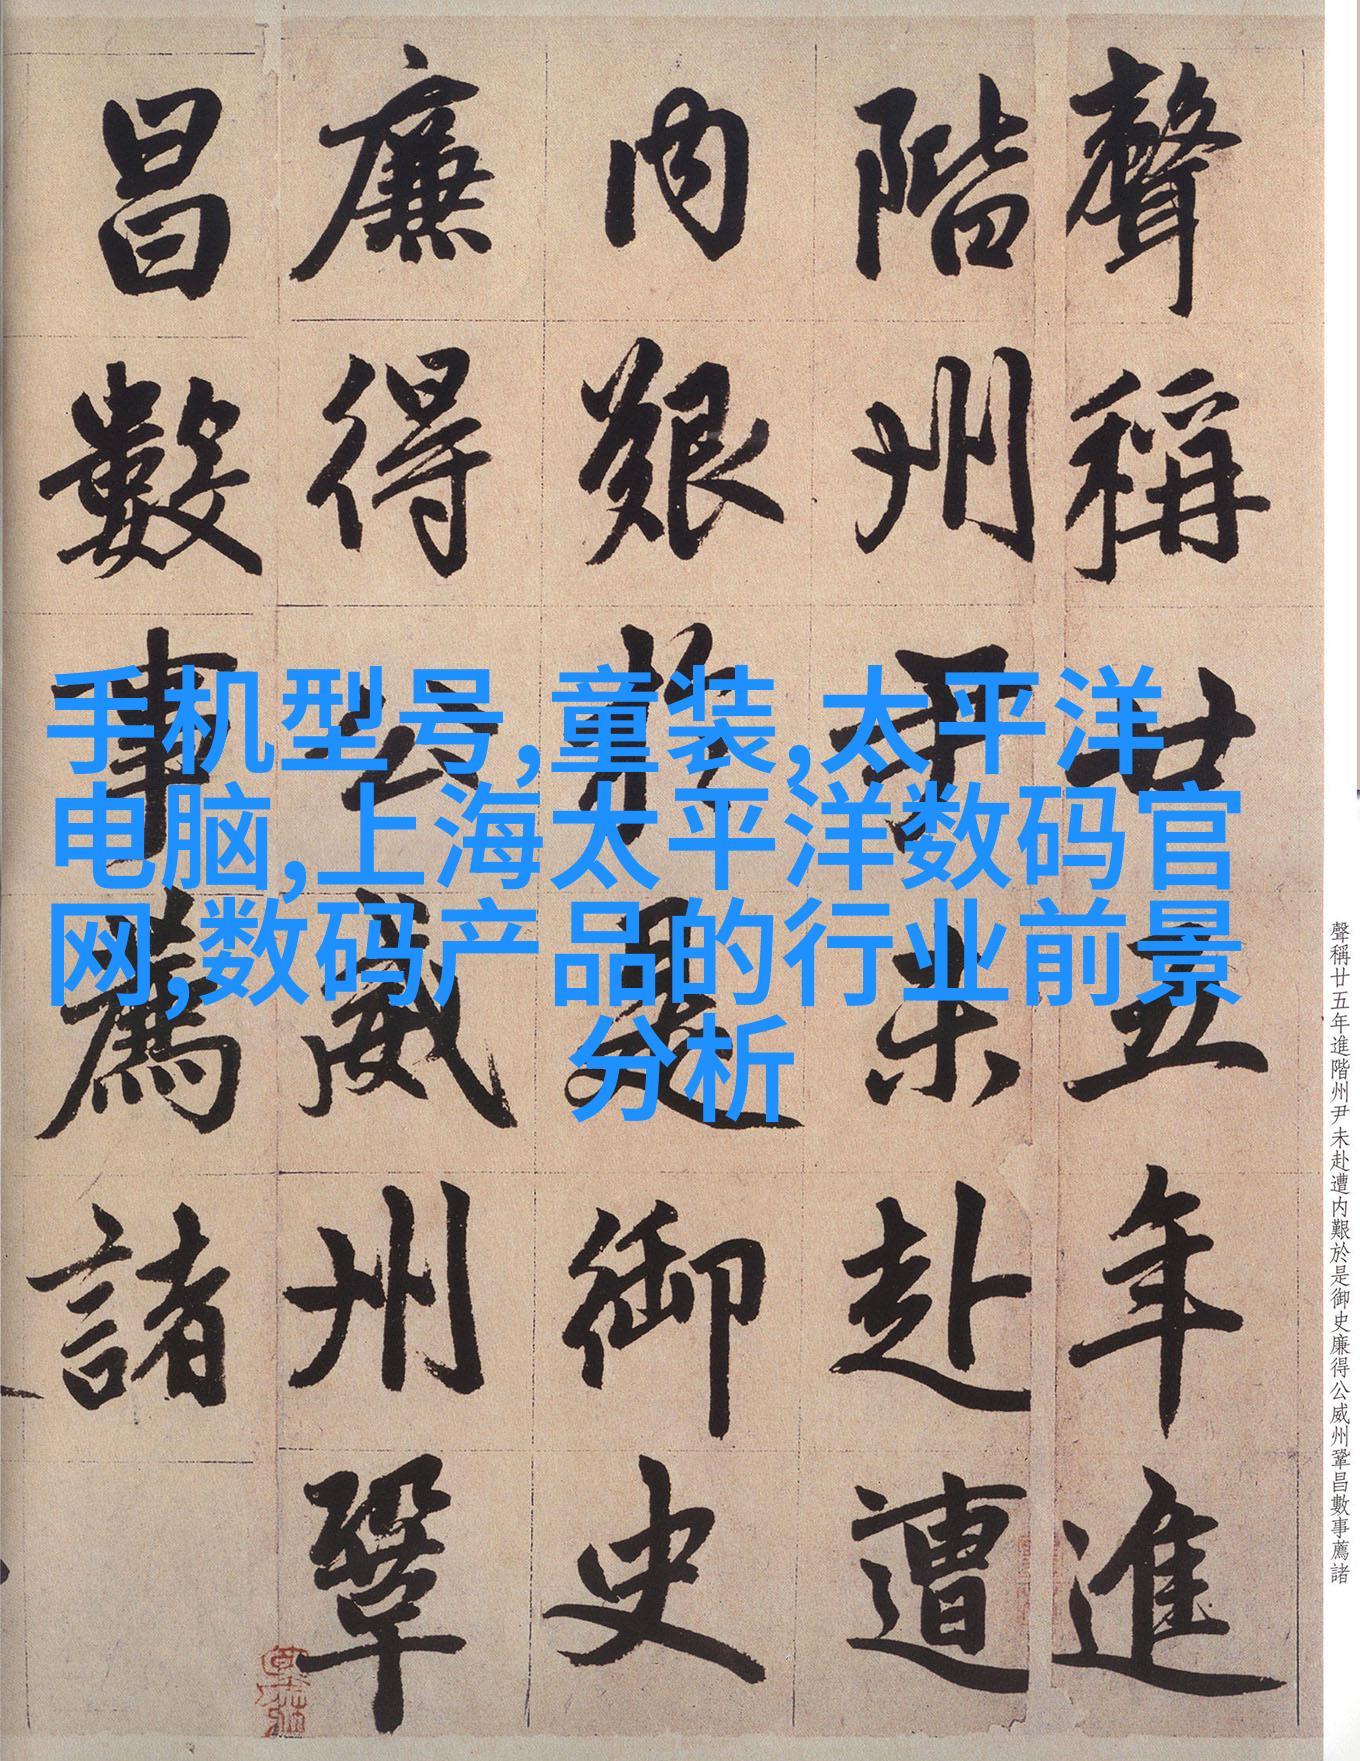 聲稱廿五年進
階州尹未赴遭
内艱於是御史
廉得公威州鞏
昌數事薦諸
手机型号,童装,太平洋
电脑,上海太平洋数码官
网,数码产品的行业前景
分析
聲稱廿五年進階州尹未赴遭内艱於是御史廉得公威州鞏昌數事薦諸